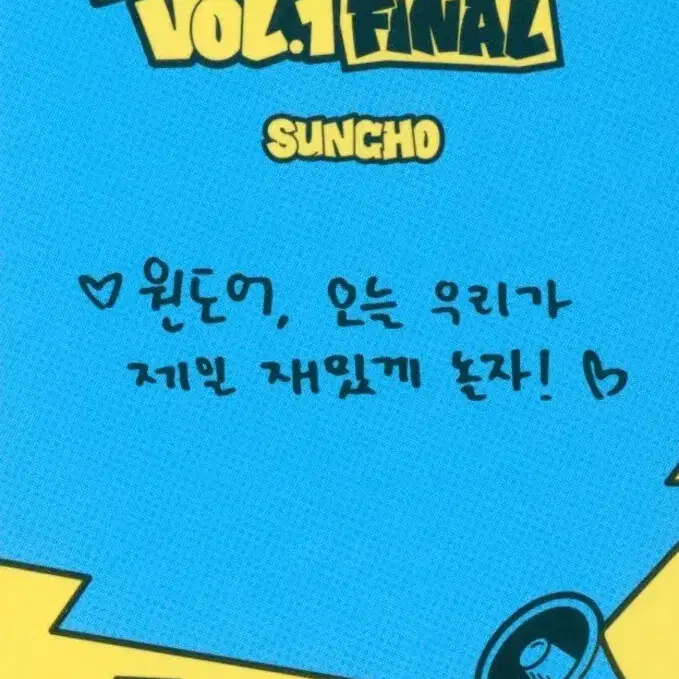 VOL.1 FINAL
SUNGHO
♡ 원도어, 오늘 우리가
제일 재밌게 놀자! ♡